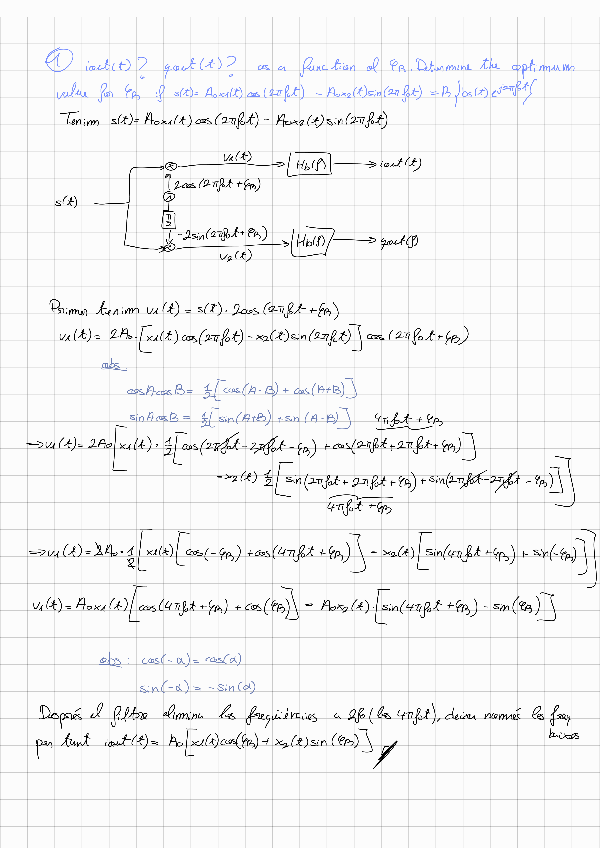 ① iout(t)? qout(t)? as a function of φB. Determine the optimum
value for φB if s(t) = A0x1(t)cos(2πf0t) - A0x2(t)sin(2πf0t) =
Tenim s(t) = A0x1(t)cos(2πf0t) - A0x2(t)sin(2πf0t)
v1(t)
Hb(f)
iout(t)
2cos(2πf0t+φB)
s(t)
π/2
-2sin(2πf0t+φB)
Hb(f)
qout(f)
v2(t)
Primer tenim v1(t) = s(t)·2cos(2πf0t+φB)
v1(t) = 2A0·[x1(t)cos(2πf0t) - x2(t)sin(2πf0t)] cos(2πf0t+φB)
obs
cosAcosB = 1/2[cos(A-B) + cos(A+B)]
sinAcosB = 1/2[sin(A+B) + sin(A-B)]
4πf0t+φB
⇒ v1(t) = 2A0[x1(t)·1/2[cos(2πf0t-2πf0t-φB) + cos(2πf0t+2πf0t+φB)]
-x2(t) 1/2[sin(2πf0t+2πf0t+φB) + sin(2πf0t-2πf0t-φB)]]
4πf0t+φB
⇒ v1(t) = 2A0·1/2[x1(t)[cos(-φB) + cos(4πf0t+φB)] - x2(t)[sin(4πf0t+φB) + sin(-φB)]]
v1(t) = A0x1(t)[cos(4πf0t+φB) + cos(φB)] - A0x2(t)·[sin(4πf0t+φB) - sin(φB)]
obs: cos(-α) = cos(α)
sin(-α) = -sin(α)
Després el filtre elimina les freqüències a 2f0 (les 4πf0t), deixa només les freq
baixes
per tant iout(t) = A0[x1(t)cos(φB) + x2(t)sin(φB)]